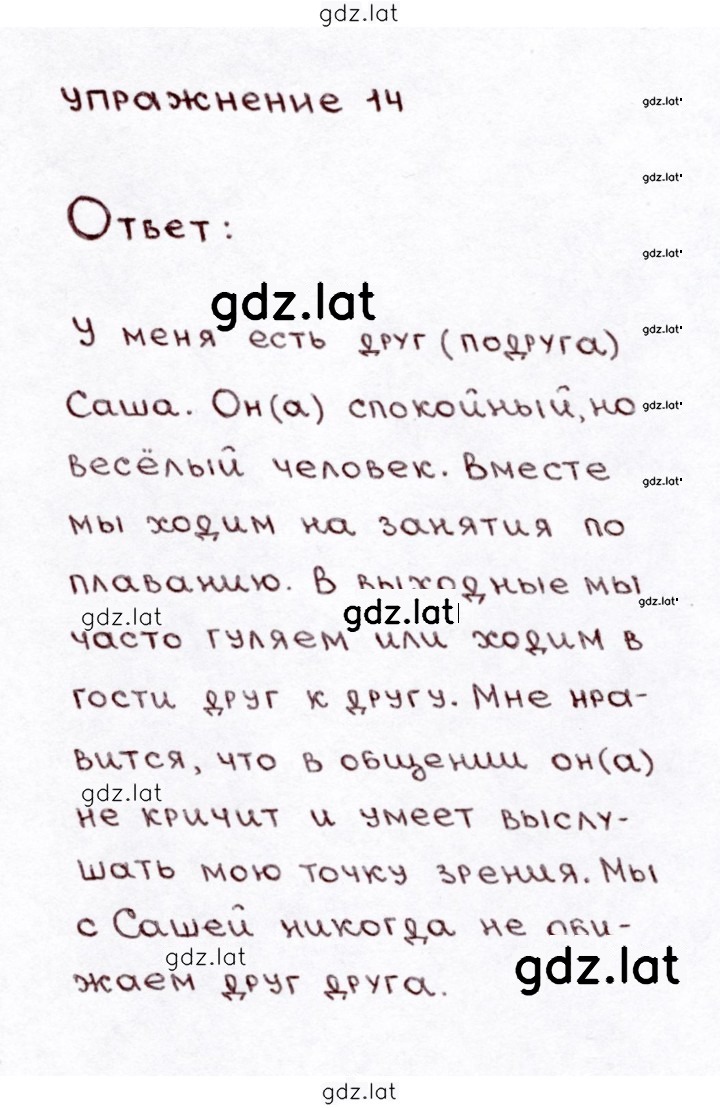 gdz.lat
упражнение 14
gdz.lat
gdz.lat
Ответ:
gdz.lat
gdz.lat
gdz.lat
У меня есть друг (подруга)
Саша. Он(а) спокойный, но
gdz.lat
весёлый человек. Вместе
gdz.lat
мы ходим на занятия по
плаванию. В выходные мы
gdz.lat
gdz.lat
gdz.lat
часто гуляем или ходим в
гости друг к другу. Мне нра-
вится, что в общении он(а)
gdz.lat
не кричит и умеет выслу-
шать мою точку зрения. Мы
с Сашей никогда не оби-
gdz.lat
gdz.lat
жаем друг друга.
gdz.lat